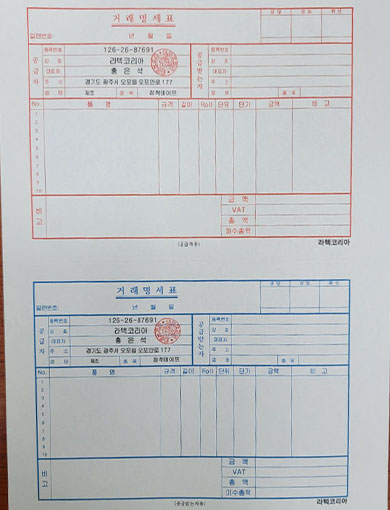 거래명세표
일련번호: 년 월 일
등록번호 126-26-87691 등록번호
공급자 상호 라텍코리아 공급받는자 상호
대표자 홍은석 대표자
주소 경기도 광주시 오포읍 오포안로 177 주소
업태 제조 종목 점착테이프 업태 종목
No. 품명 규격 길이 Roll 단위 단가 금액 비고
1
2
3
4
5
6
7
8
9
10
비고 금액
VAT
총액
미수총액
(공급자용) 라텍코리아
거래명세표
일련번호: 년 월 일
등록번호 126-26-87691 등록번호
공급자 상호 라텍코리아 공급받는자 상호
대표자 홍은석 대표자
주소 경기도 광주시 오포읍 오포안로 177 주소
업태 제조 종목 점착테이프 업태 종목
No. 품명 규격 길이 Roll 단위 단가 금액 비고
1
2
3
4
5
6
7
8
9
10
비고 금액
VAT
총액
미수총액
(공급받는자용) 라텍코리아